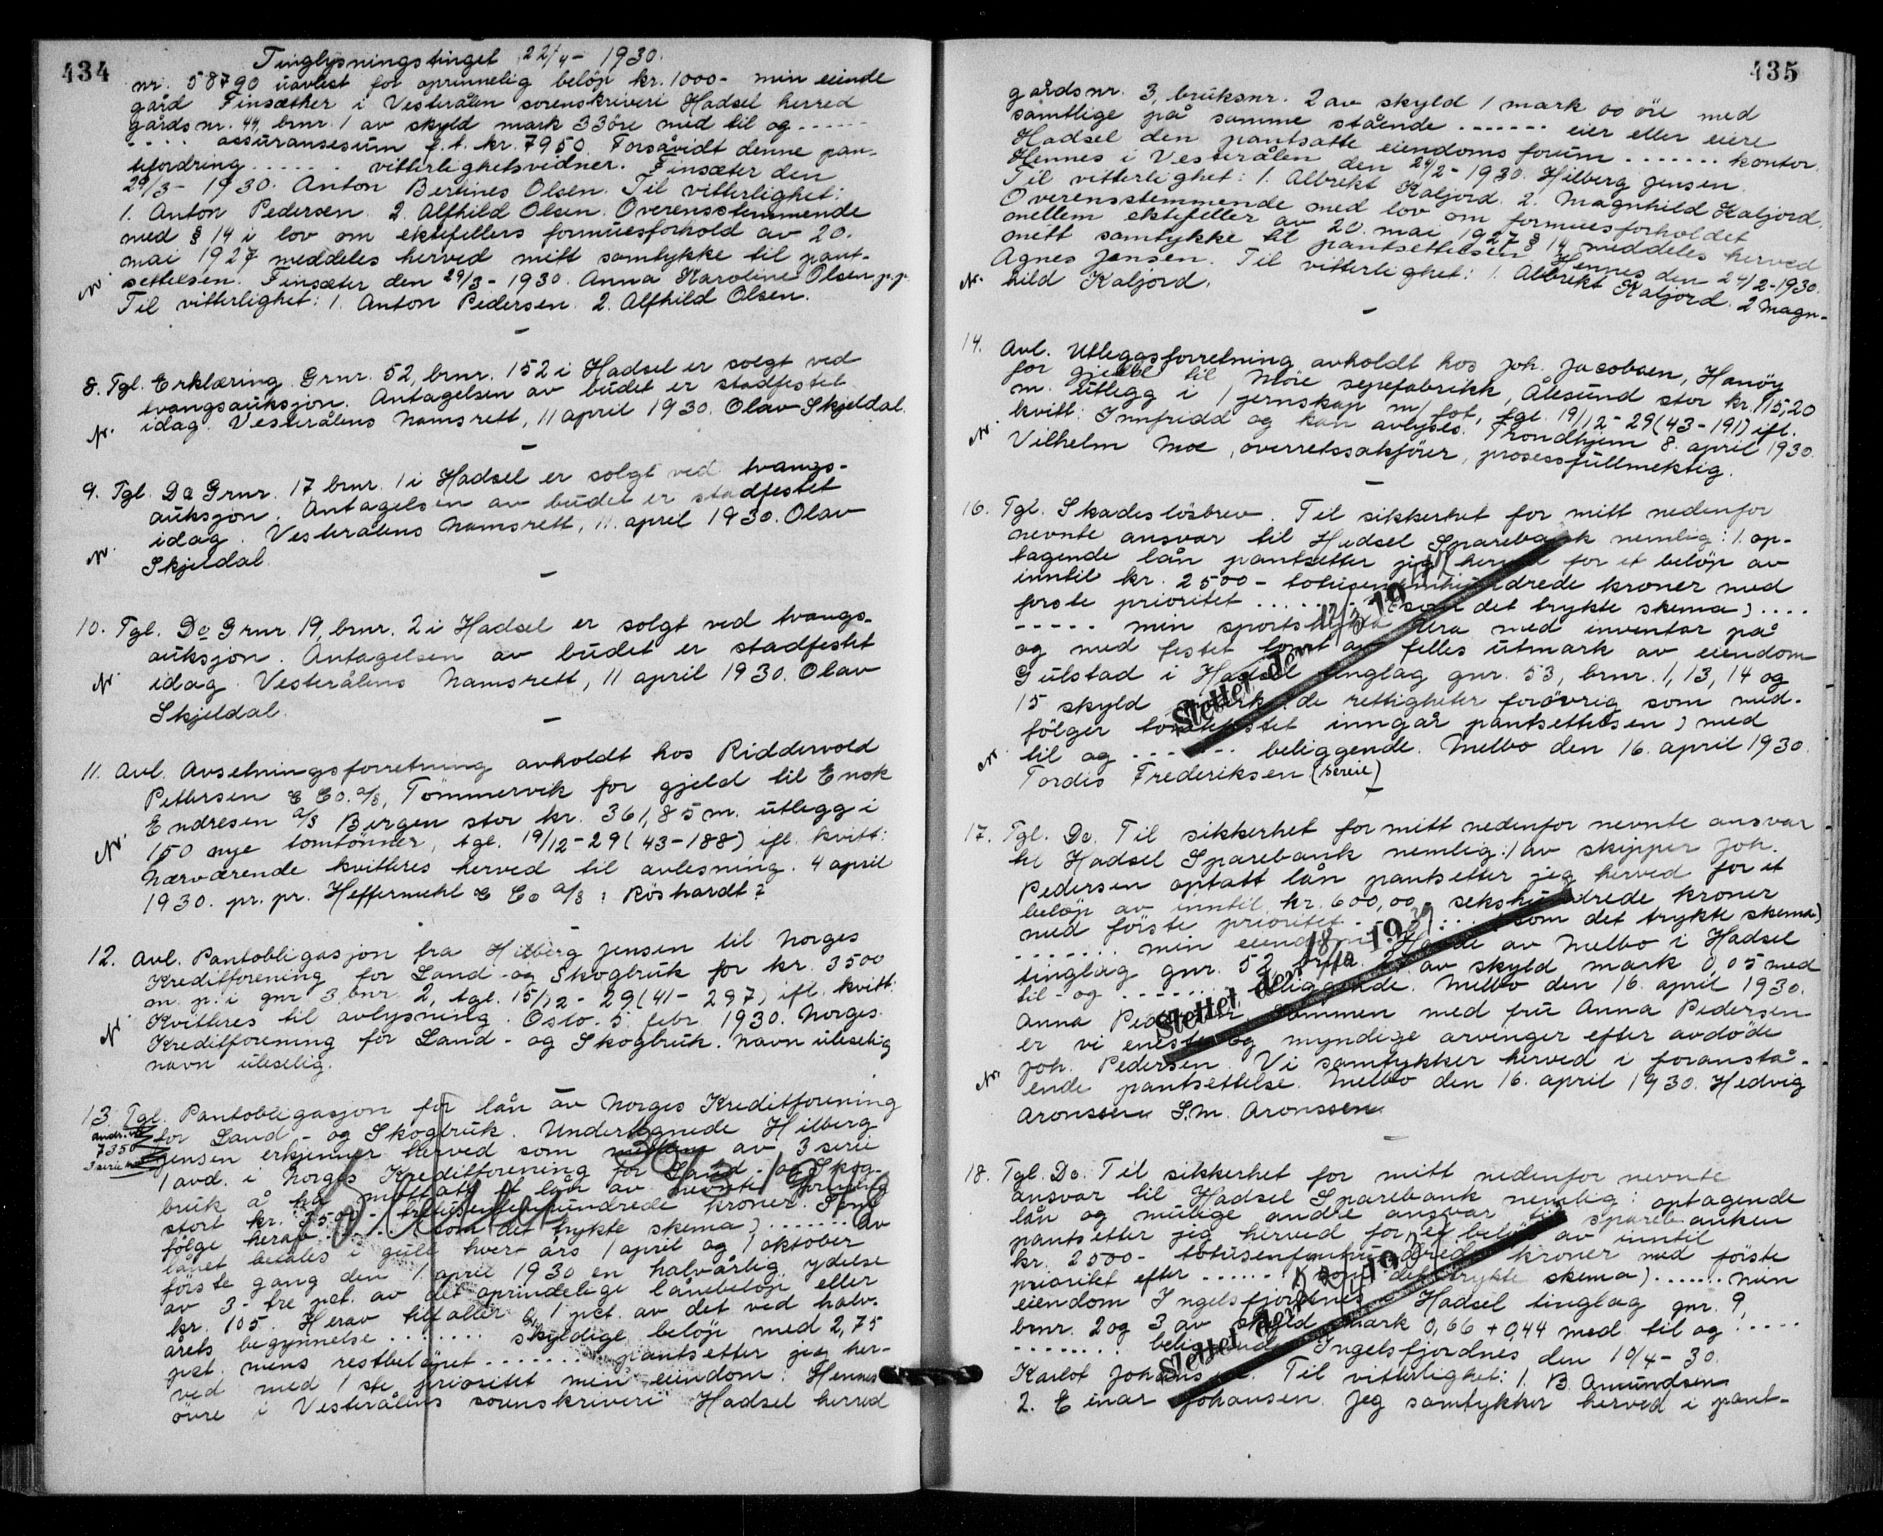 434
Tinglysningstinget 22/4 - 1930.
nr. 58790 uavløst for oprinnelig beløp kr. 1000 - min eiende
gård Finsæther i Vesterålen sorenskriveri Hadsel herred
gårdsnr. 44, brnr. 1 av skyld mark 33 öre med til og ......
.... assuransesum f.t. kr. 7950. Forsåvidt denne pan-
tefordring ...... vitterlighetsvidner. Finsæter den
29/3 - 1930. Anton Bertines Olsen. Til vitterlighet:
1. Anton Pedersen. 2. Alfhild Olsen. Overensstemmende
med § 14 i lov om ektefellers formuesforhold av 20.
mai 1927 meddeles herved mitt samtykke til pant-
settelsen. Finsæter den 29/3 - 1930. Anna Karoline Olsen p.p.
Til vitterlighet: 1. Anton Pedersen. 2. Alfhild Olsen.
8. Tgl. Erklæring. Grnr. 52, brnr. 152 i Hadsel er solgt ved
tvangsauksjon. Antagelsen av budet er stadfestet
idag. Vesterålens Namsrett, 11 april 1930. Olav Skjeldal.
9. Tgl. Do Grnr. 17 brnr. 1 i Hadsel er solgt ved tvangs-
auksjon. Antagelsen av budet er stadfestet
idag. Vesterålens Namsrett, 11. april 1930. Olav
Skjeldal.
10. Tgl. Do Grnr. 19, brnr. 2 i Hadsel er solgt ved tvangs-
auksjon. Antagelsen av budet er stadfestet
idag. Vesterålens Namsrett, 11 april 1930. Olav
Skjeldal.
11. Avl. Avsetningsforretning avholdt hos Riddervold
Pettersen & Co. a/s, Tömmervik for gjeld til Ensk
Endresen a/s Bergen stor kr. 361,85 m. utlegg i
150 nye tomtönner, tgl. 19/12 - 29 (43 - 188) ifl. kvitt:
Nærværende kvitteres herved til avlesning. 4 april
1930. pr. pr. Heffermehl & Co a/s: Röshardt?
12. Avl. Pantobligasjon fra Hilberg Jensen til Norges
Kreditforening for Land- og Skogbruk for kr. 3500
m. p. i gnr 3 bnr 2, tgl. 15/12 - 29 (41 - 297) ifl. kvitt:
Kvitteres til avlysning. Oslo 5 febr. 1930. Norges
Kreditforening for Land- og Skogbruk. Navn uleselig
navn uleselig.
13. Tgl. Pantobligasjon for lån av Norges Kreditforening
for Land- og Skogbruk. Undertegnede Hilberg
Jensen erkjenner herved som av 3 serie
1 avd. i Norges Kreditforening for Land- og Skog-
bruk å ha mottatt et lån av nevnte forening
stort kr. 3500 - tretusenfemhundrede kroner. Som
følge herav ..... (som det trykte skema) ....... av
lånet betales i gull hvert års 1 april og 1 oktober
förste gang den 1 april 1930 en halvårlig ydelse
av 3 - tre pct. av det oprindelige lånebeløp eller
kr. 105. Herav tilfaller 1 pct. av det ved halv-
årets begynnelse ........ skyldige beløp med 2,75
pct. mens restbeløpet ........ pantsetter jeg her-
ved med 1 ste prioritet min eiendom: Hennes
övre i Vesterålens sorenskriveri Hadsel herred
435
gårdsnr. 3, bruksnr. 2 av skyld 1 mark 00 öre med
samtlige på samme stående ....... eier eller eiere
Hadsel den pantsatte eiendoms forum ....... kontor.
Hennes i Vesterålen den 24/2 - 1930. Hilberg Jensen.
Til vitterlighet: 1. Albrekt Kaljord. 2. Magnhild Kaljord.
Overensstemmende med lov om formuesforholdet
mellem ektefeller av 20. mai 1927 § 14 meddeles herved
mitt samtykke til pantsettelsen. Hennes den 24/2 - 1930.
Agnes Jensen. Til vitterlighet: 1. Albrekt Kaljord. 2 Magn-
hild Kaljord.
14. Avl. Utleggsforretning avholdt hos Joh. Jacobsen, Hanöy
for gjeld til Möre sepefabrikk, Ålesund stor kr. 115,20
m. utlegg i 1 jernskap m/ fot, tgl. 19/12 - 29 (43 - 191) ifl.
kvitt: Innfridd og kan avlyses. Trondhjem 8. april 1930.
Vilhelm Moe, overrettssakförer, prosessfullmektig.
16. Tgl. Skadeslösbrev. Til sikkerhet for mitt nedenfor
nevnte ansvar til Hadsel Sparebank nemlig: 1. op-
tagende lån pantsetter jeg herved for et beløp av
inntil kr. 2500 - totusenfemhundrede kroner med
förste prioritet ...... (som det trykte skema) ....
..... min sportshytte med inventar på
og med festet tomt av felles utmark av eiendom
Gulstad i Hadsel tinglag gnr. 53, brnr. 1, 13, 14 og
15 skyld mark (de rettigheter forövrig som med-
fölger tomtefestet inngår pantsettelsen) med
til og ....... beliggende. Melbo den 16. april 1930.
Tordis Frederiksen (sereie)
Slettet den 19
17. Tgl. Do. Til sikkerhet for mitt nedenfor nevnte ansvar
til Hadsel Sparebank nemlig: 1 av skipper Joh.
Pedersen optatt lån pantsetter jeg herved for et
beløp av inntil kr. 600,00 - sekshundrede kroner
med förste prioritet ..... (som det trykte skema)
....... min eiendom av Melbo i Hadsel
tinglag gnr. 52 av skyld mark 0,05 med
til- og ....... beliggende. Melbo den 16. april 1930.
Anna Pedersen. Sammen med fru Anna Pedersen
er vi eneste og myndige arvinger efter avdöde
Joh. Pedersen. Vi samtykker herved i foranstå-
ende pantsettelse. Melbo den 16. april 1930. Hedvig
Aronssen. S.M. Aronssen.
Slettet den 19
18. Tgl. Do. Til sikkerhet for mitt nedenfor nevnte
ansvar til Hadsel Sparebank nemlig: optagende
lån og mulige andre ansvar til sparebanken
pantsetter jeg herved for et beløp av inntil
kr. 2500 - totusenfemhundrede kroner med förste
prioritet efter ...... (som det trykte skema) ....... min
eiendom Ingelsfjordnes i Hadsel tinglag gnr. 9,
brnr. 2 og 3 av skyld mark 0,66 + 0,44 med til og ....
........ beliggende Ingelsfjordnes den 10/4 - 30.
Karlot Johansen. Til vitterlighet: 1. B. Amundsen
2. Einar Johansen. Jeg samtykker herved i pant-
Slettet den 19